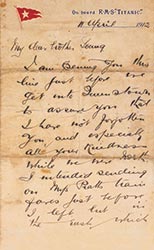 On board R.M.S. "TITANIC".
11 April 1912
My Dear brother Young
I am sending you this
line just before we
get into Queenstown
to assure you that
I have not forgotten
you, and especially
all your kindness
while we were North
I intended sending
on Mrs Bath's train
fares just before
I left but in
the rush which